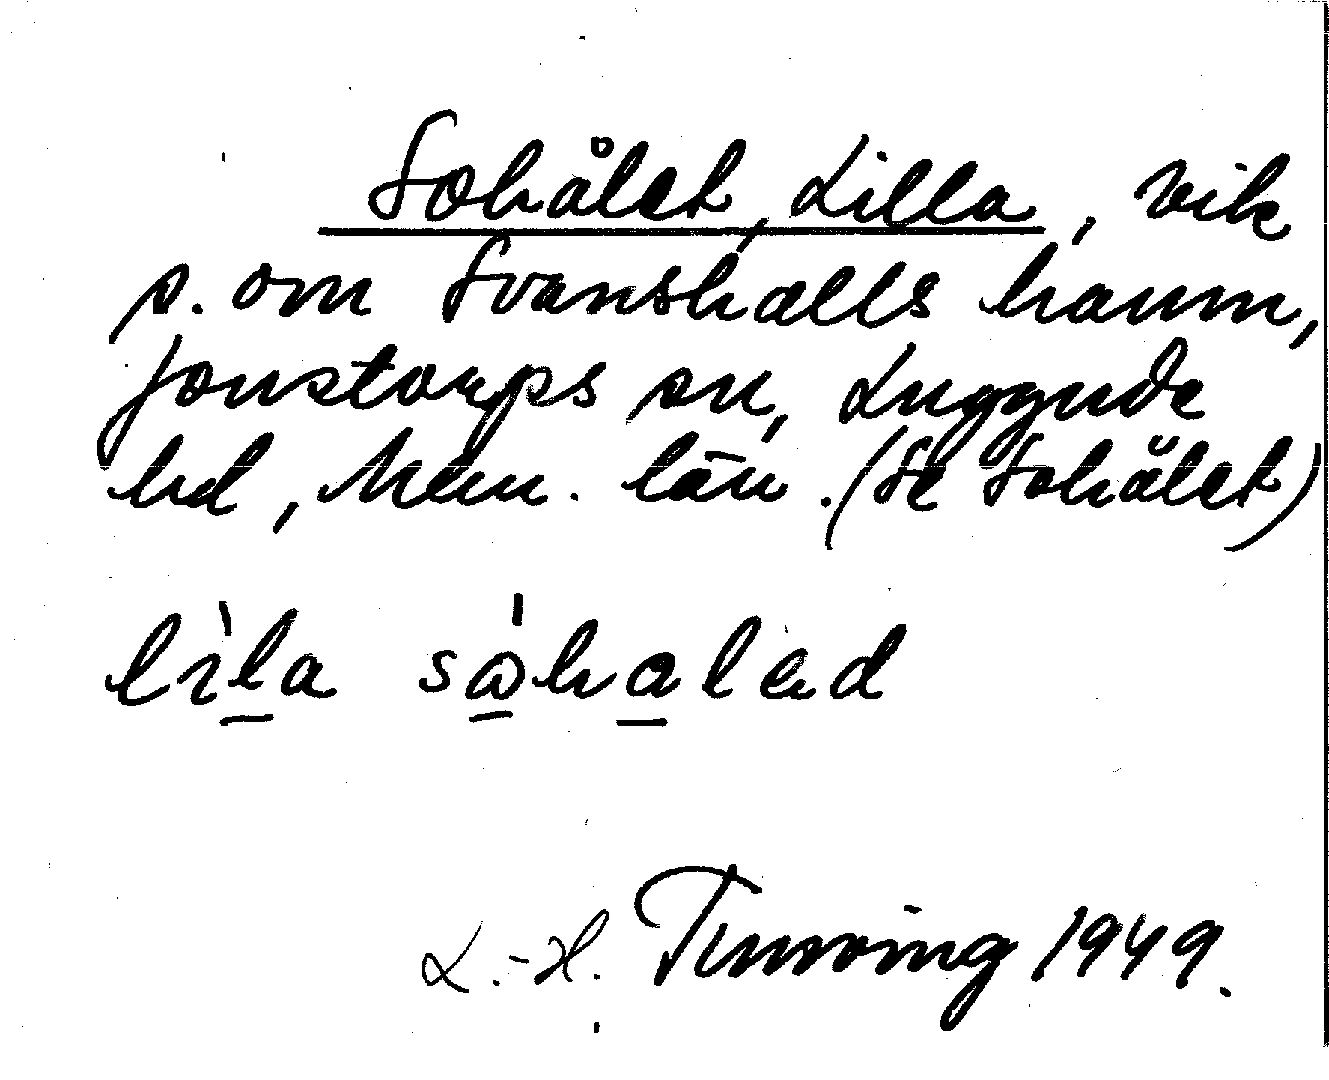 Sohålet, Lilla, vik
s. om Svanshalls hamn,
Jonstorps sn, Luggude
hd, Mem. län. (Se Sohålet)
lila såhaled
L.-H. Tunving 1949.